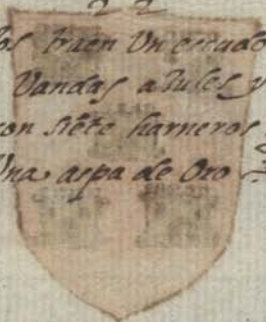 los traen Un escudo
Vandas asules y
con siete harneros
Una aspa de Oro